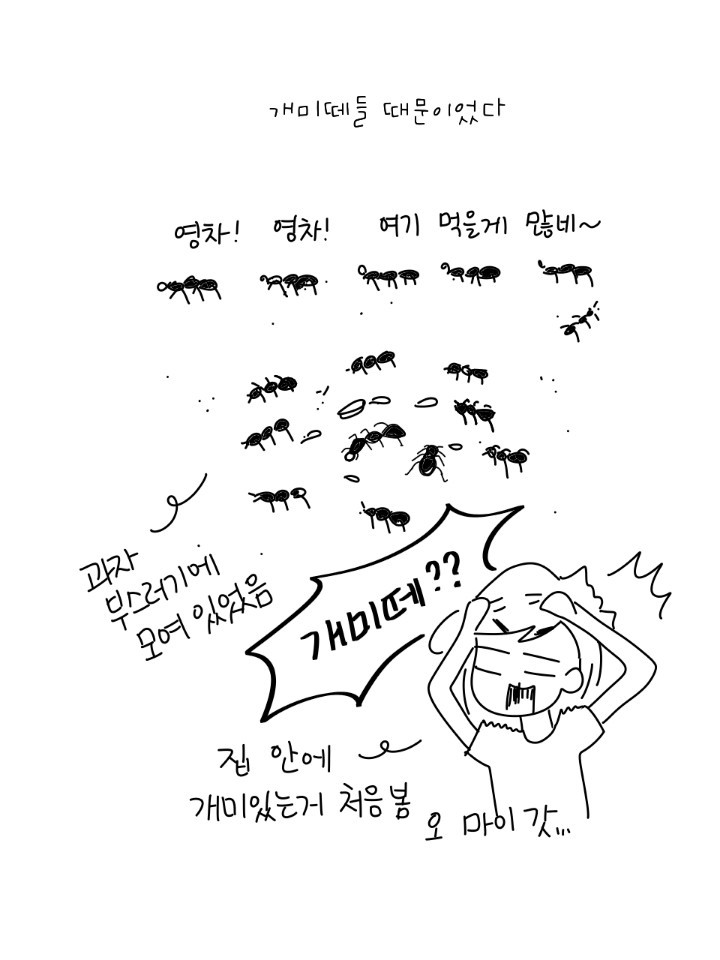 개미떼들 때문이었다
영차! 영차! 여기 먹을게 많네~
과자
부스러기에
모여 있었음
개미떼??
집 안에
개미있는거 처음봄
오 마이 갓...